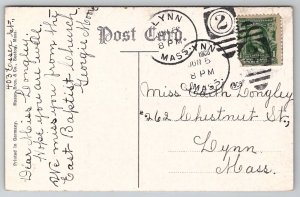 Post Card.
LYNN
8 PM
MASS.
2
LYNN
JUN 5
8 PM
MASS.
Miss Edith Longley
262 Chestnut St,
Lynn,
Mass.
403 Essex St,
Dear Miss Longley
Hope you are well.
We miss you from the
East Baptist Church.
Georgie Moore
Printed in Germany.